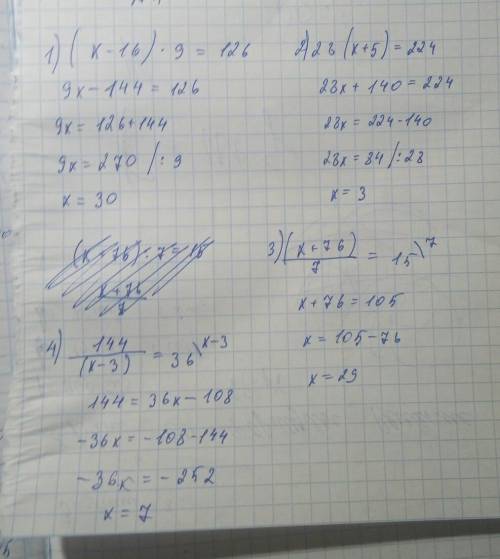 1) (x-16) · 9 = 126
9x - 144 = 126
9x = 126+144
9x = 270 /: 9
x = 30
2) 28 (x+5) = 224
28x + 140 = 224
28x = 224-140
28x = 84 /: 28
x = 3
(x+76) : 7 = 15
x+76
7
3) (x+76)
7
= 15\7
x+76 = 105
x = 105-76
x = 29
4) 144
(x-3)
= 36\x-3
144 = 36x-108
-36x = -108-144
-36x = -252
x = 7